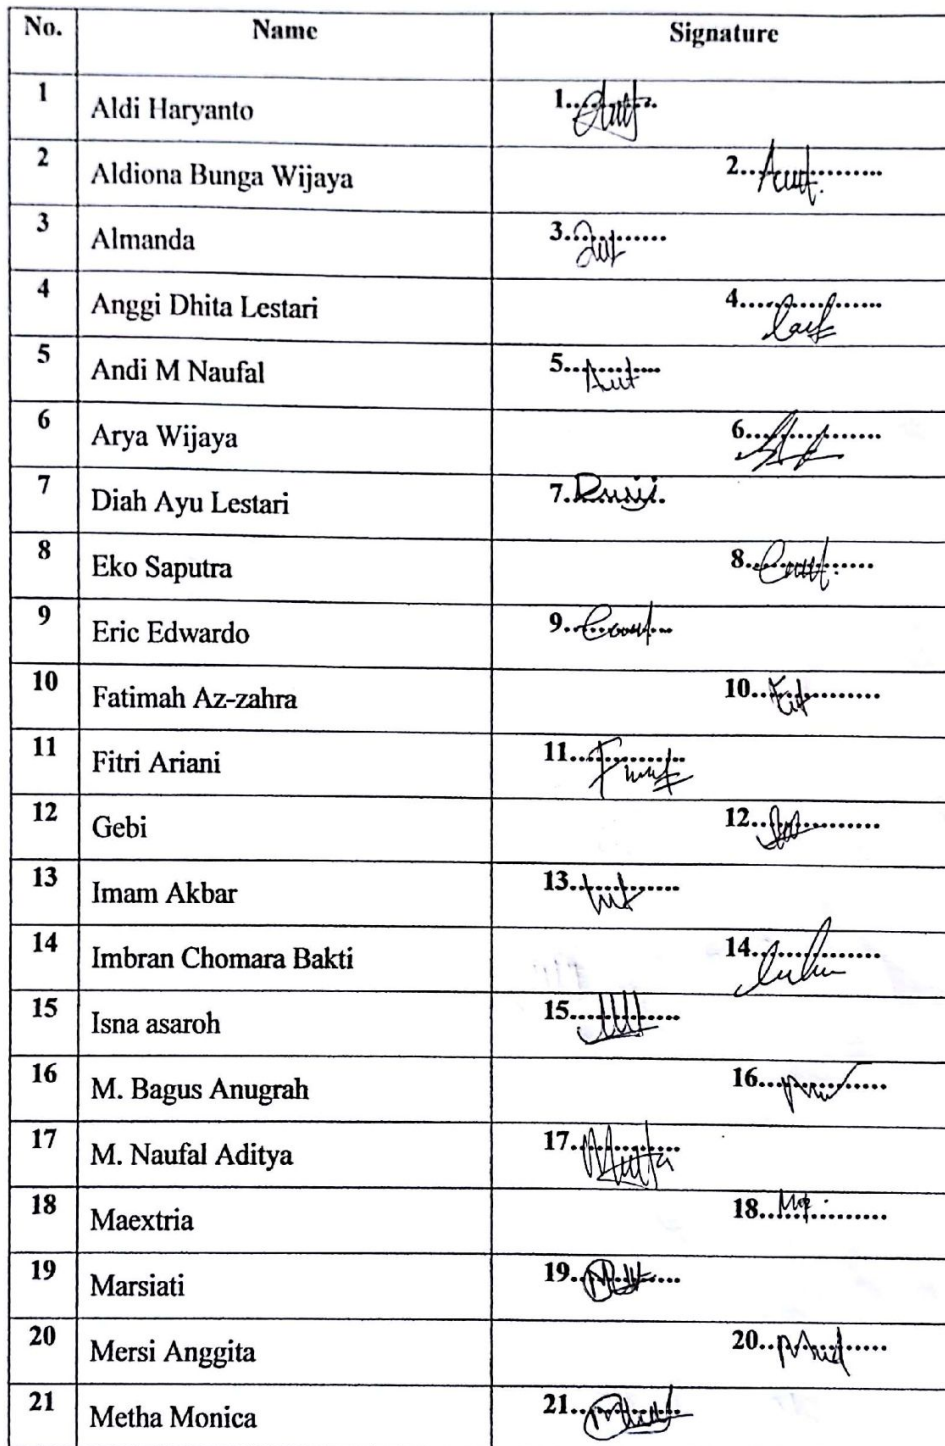 No. Name Signature
1 Aldi Haryanto 1..........
2 Aldiona Bunga Wijaya 2..............
3 Almanda 3..........
4 Anggi Dhita Lestari 4..............
5 Andi M Naufal 5..........
6 Arya Wijaya 6..............
7 Diah Ayu Lestari 7..........
8 Eko Saputra 8..............
9 Eric Edwardo 9..........
10 Fatimah Az-zahra 10..............
11 Fitri Ariani 11..............
12 Gebi 12..............
13 Imam Akbar 13..............
14 Imbran Chomara Bakti 14..............
15 Isna asaroh 15..............
16 M. Bagus Anugrah 16..............
17 M. Naufal Aditya 17..............
18 Maextria 18..............
19 Marsiati 19..............
20 Mersi Anggita 20..............
21 Metha Monica 21..............